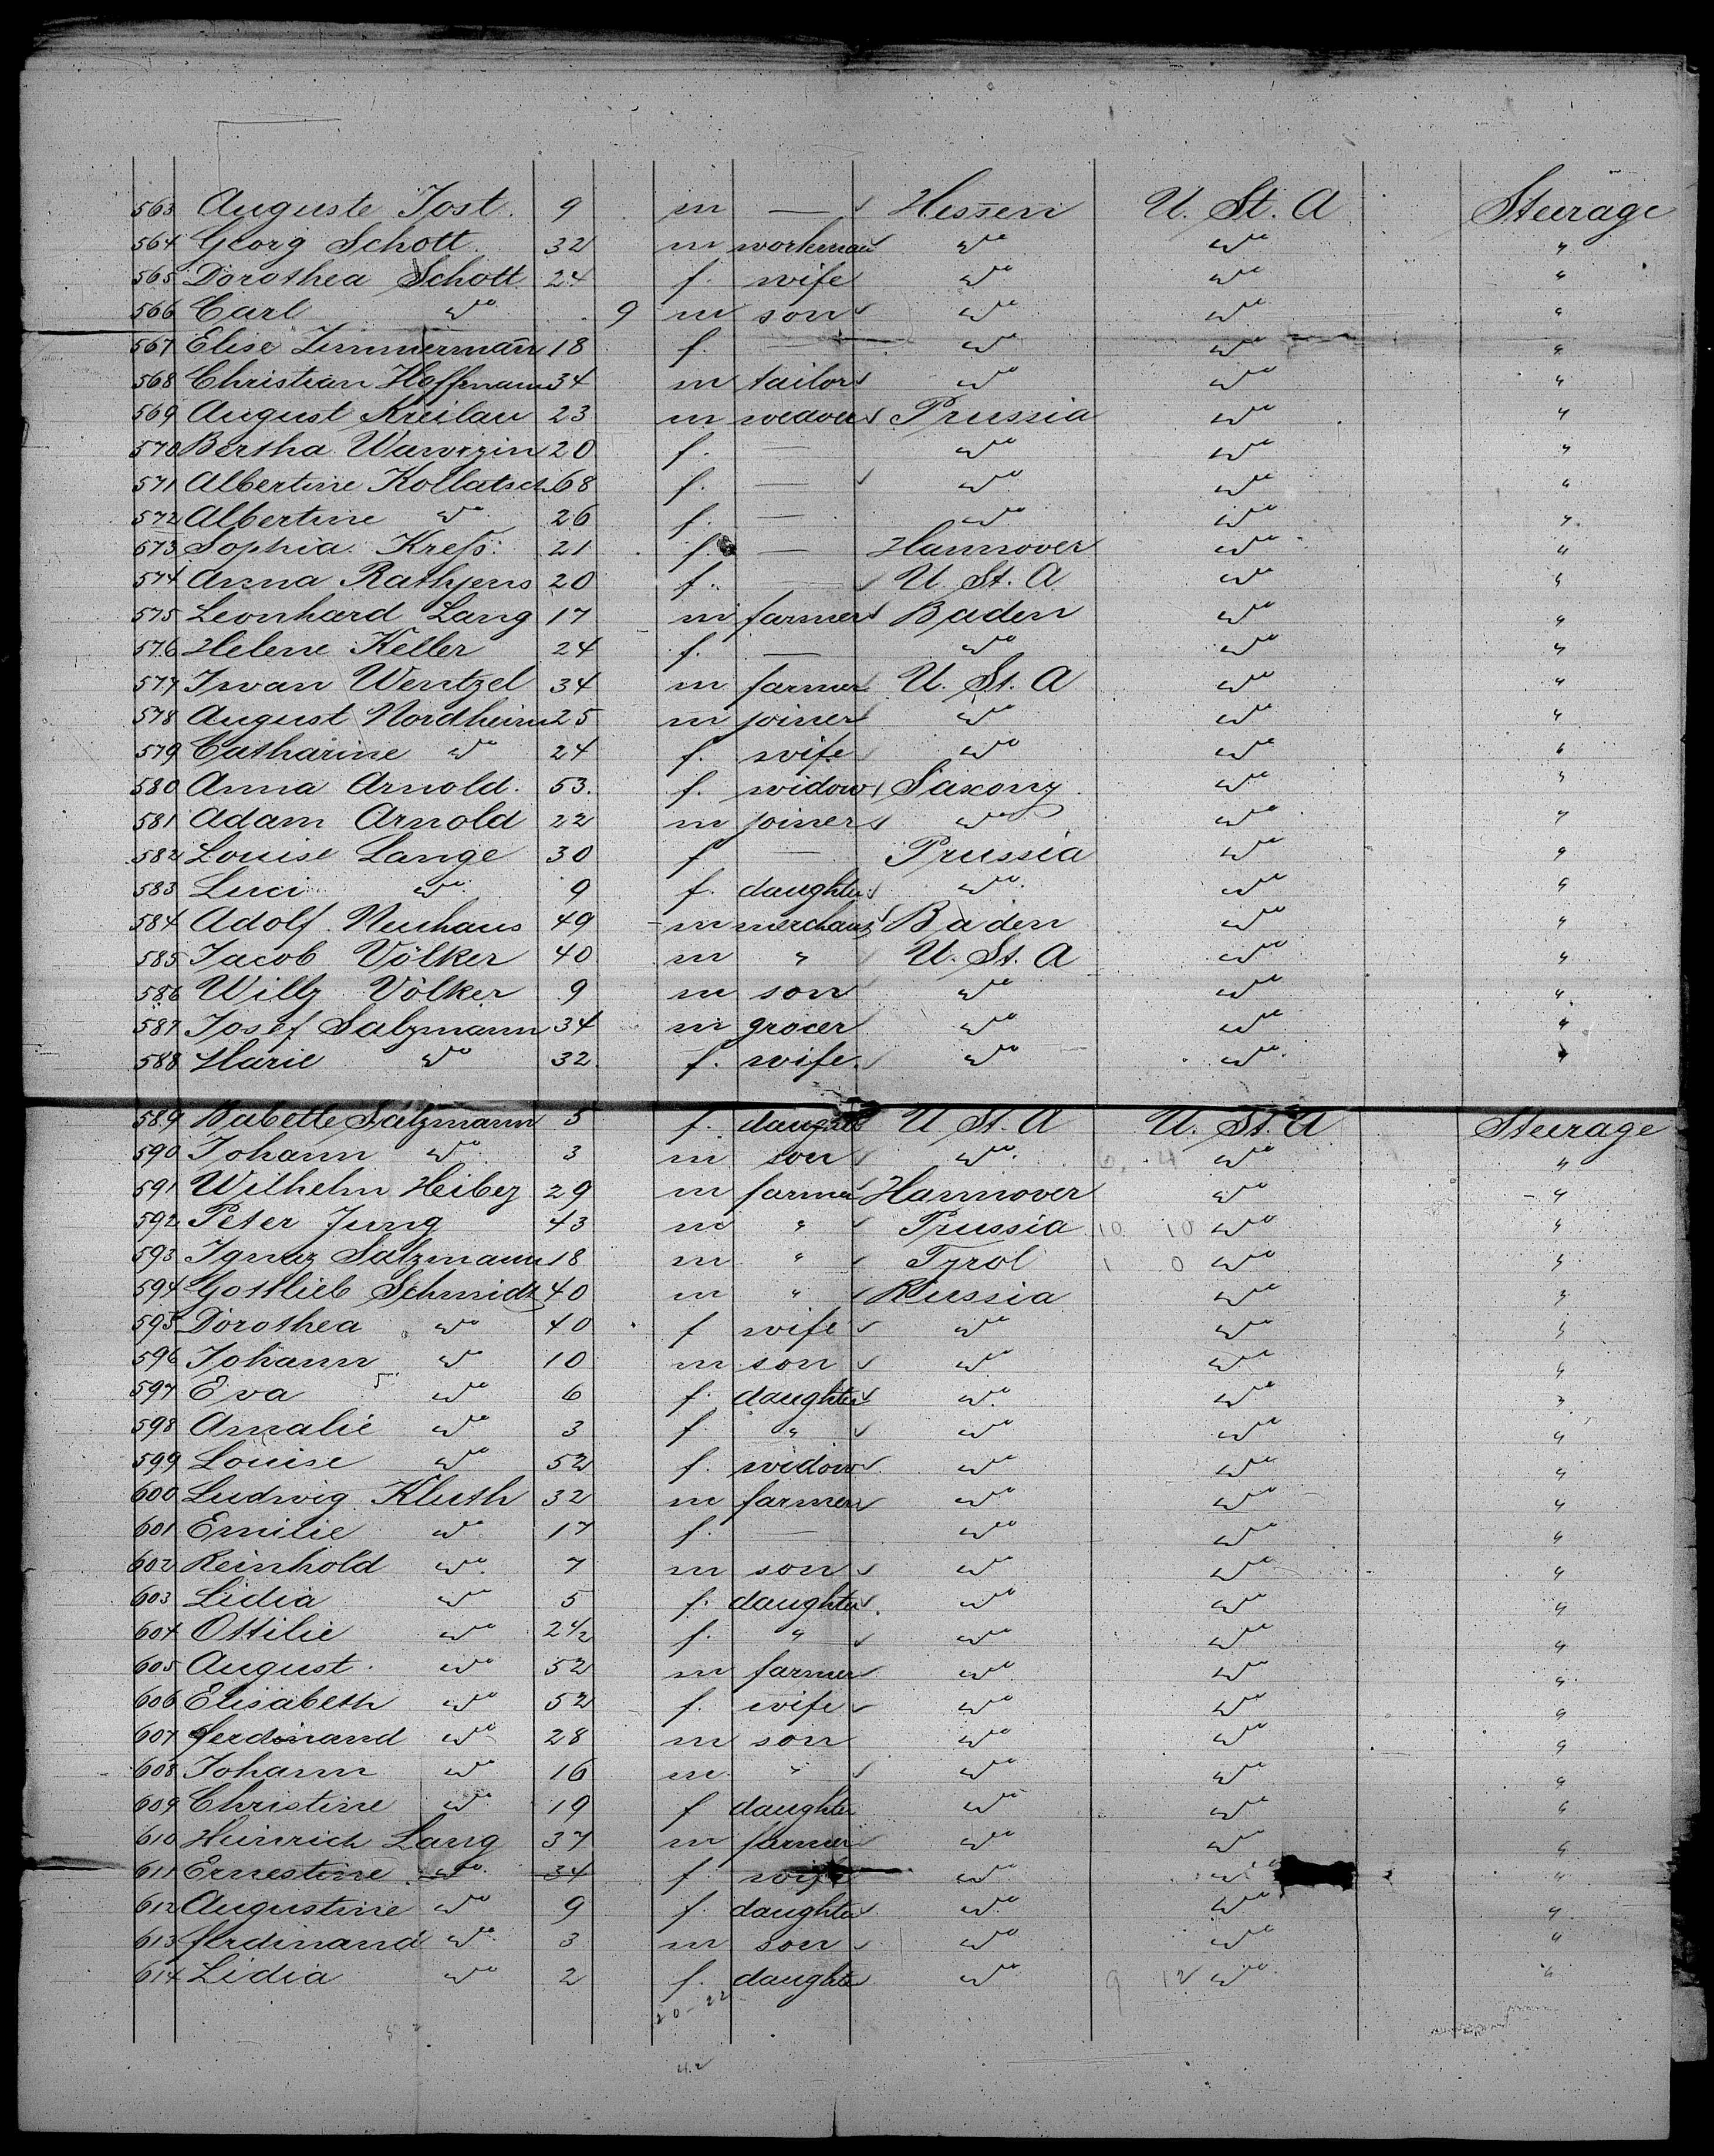 563 Auguste Jost. 9 m — Hessen U. St. A Steerage
564 Georg Schott 32 m workman do do "
565 Dorothea Schott 24 f. wife do do "
566 Carl do 9 m son do do "
567 Elise Zimmermann 18 f. — do do "
568 Christian Hoffmann 34 m tailor do do "
569 August Kreilau 23 m weaver Prussia do "
570 Bertha Wawrzin 20 f. — do do "
571 Albertine Kollatsch 68 f. — do do "
572 Albertine do 26 f. — do do "
573 Sophia Kreß. 21 f. — Hannover do "
574 Anna Rathjens 20 f. — U. St. A do "
575 Leonhard Lang 17 m farmer Baden do "
576 Helene Keller 24 f. — do do "
577 Iwan Wentzel 34 m farmer U. St. A do "
578 August Nordheim 25 m joiner do do "
579 Catharine do 24 f. wife do do "
580 Anna Arnold. 53. f. widow Saxony do "
581 Adam Arnold 22 m joiner do do "
582 Louise Lange 30 f — Prussia do "
583 Luci do 9 f. daughter do do "
584 Adolf Neuhaus 49 m merchant Baden do "
585 Jacob Völker 40 m " U. St. A do "
586 Willy Völker 9 m son do do "
587 Josef Salzmann 34 m grocer do do "
588 Marie do 32 f. wife. do do "
589 Babette Salzmann 5 f. daughter U. St. A U. St. A Steerage
590 Johann do 3 m son do do "
591 Wilhelm Heibey 29 m farmer Hannover do "
592 Peter Jung 43 m " Prussia 10 10 do "
593 Ignaz Salzmann 18 m " Tyrol 1 0 do "
594 Gottlieb Schmidt 40 m " Russia do "
595 Dorothea do 40 f wife do do "
596 Johann do 10 m son do do "
597 Eva do 6 f. daughter do do "
598 Amalie do 3 f. " do do "
599 Louise do 52 f. widow do do "
600 Ludwig Kluth 32 m farmer do do "
601 Emilie do 17 f. — do do "
602 Reinhold do 7 m son do do "
603 Lidia do 5 f. daughter do do "
604 Ottilie do 2 1/2 f. " do do "
605 August do 52 m farmer do do "
606 Elisabeth do 52 f. wife do do "
607 Ferdinand do 28 m son do do "
608 Johann do 16 m " do do "
609 Christine do 19 f daughter do do "
610 Heinrich Lang 37 m farmer do do "
611 Ernestine do 34 f. wife do do "
612 Augustine do 9 f. daughter do do "
613 Ferdinand do 3 m son do do "
614 Lidia do 2 f. daughter do 9 12 do "
20-22